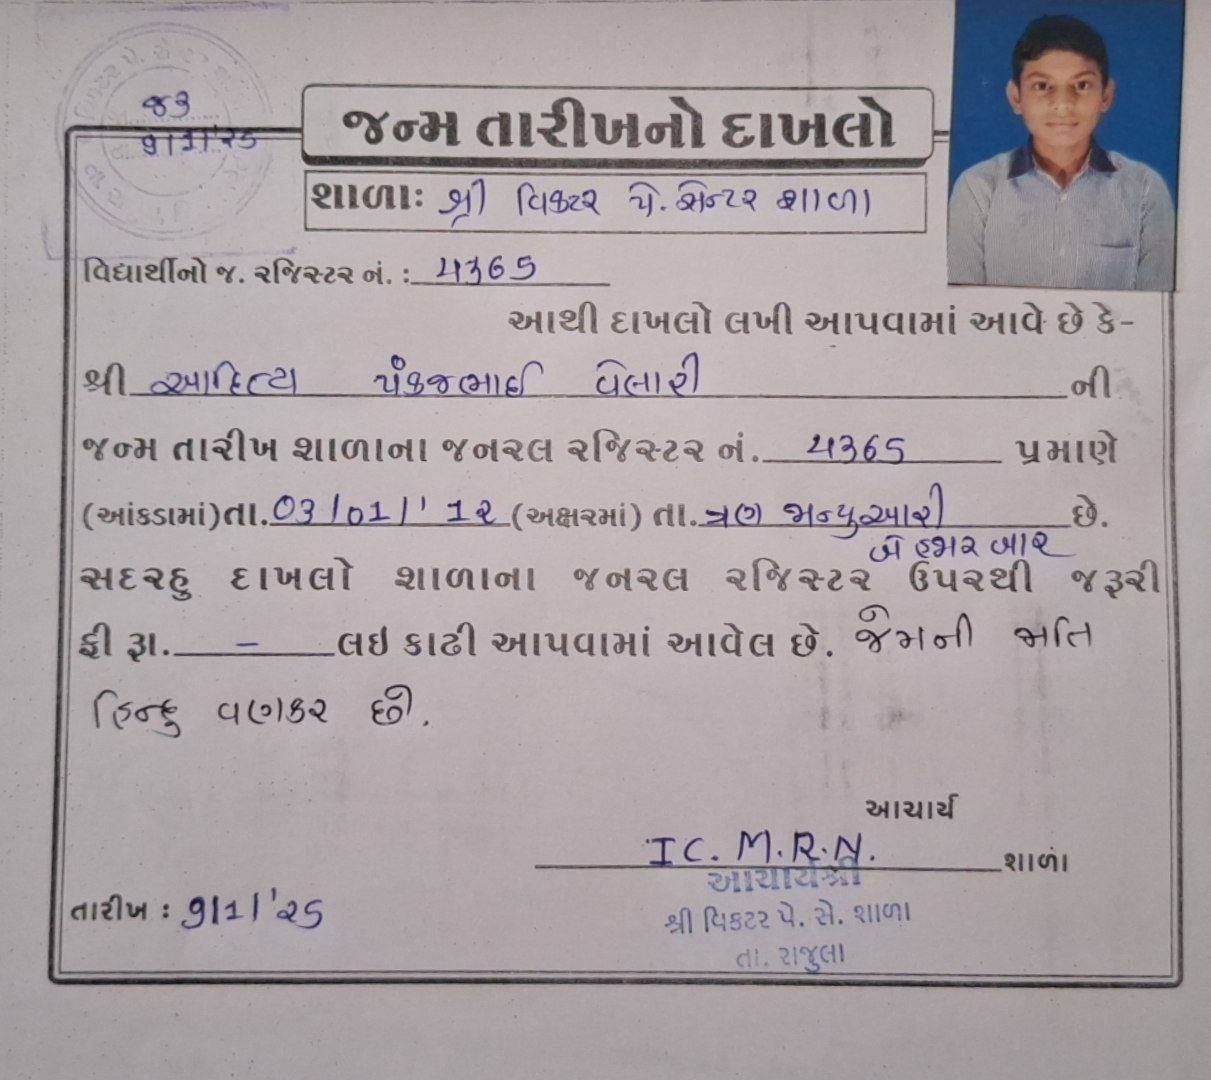 જક
૭/૧/'૨૬
જન્મ તારીખનો દાખલો
શાળાઃ શ્રી વિકટર પે. સેન્ટર શાળા
વિદ્યાર્થીનો જ. રજિસ્ટર નં. : ૫૩૬૬
આથી દાખલો લખી આપવામાં આવે છે કે-
શ્રી આદિત્ય પંકજભાઈ વેલારી ની
જન્મ તારીખ શાળાના જનરલ રજિસ્ટર નં. ૫૩૬૬ પ્રમાણે
(આંકડામાં)તા. ૦૩/૦૧/'૧૨ (અક્ષરમાં) તા. ત્રણ જાન્યુઆરી છે.
બે હજાર બાર
સદરહુ દાખલો શાળાના જનરલ રજિસ્ટર ઉપરથી જરૂરી
ફી રૂા. – લઇ કાઢી આપવામાં આવેલ છે. જેમની જાતિ
હિન્દુ વણકર છે.
આચાર્ય
I C. M. R. N. શાળા
આચાર્યશ્રી
શ્રી વિકટર પે. સે. શાળા
તા. રાજુલા
તારીખ : ૭/૧/'૨૬